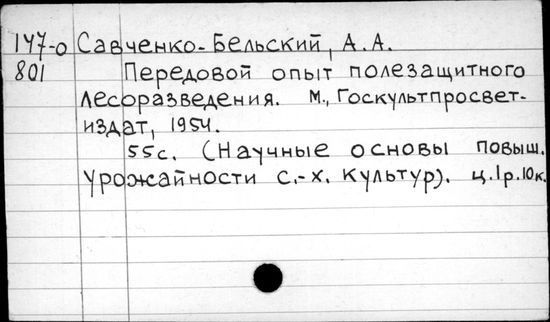 147-о Савченко-Бельский, А.А.
801 Передовой опыт полезащитного
лесоразведения. М., Госкультпросвет-
издат, 1954.
55с. (Научные основы повыш.
урожайности с.-х. культур). ц.1р.10к.